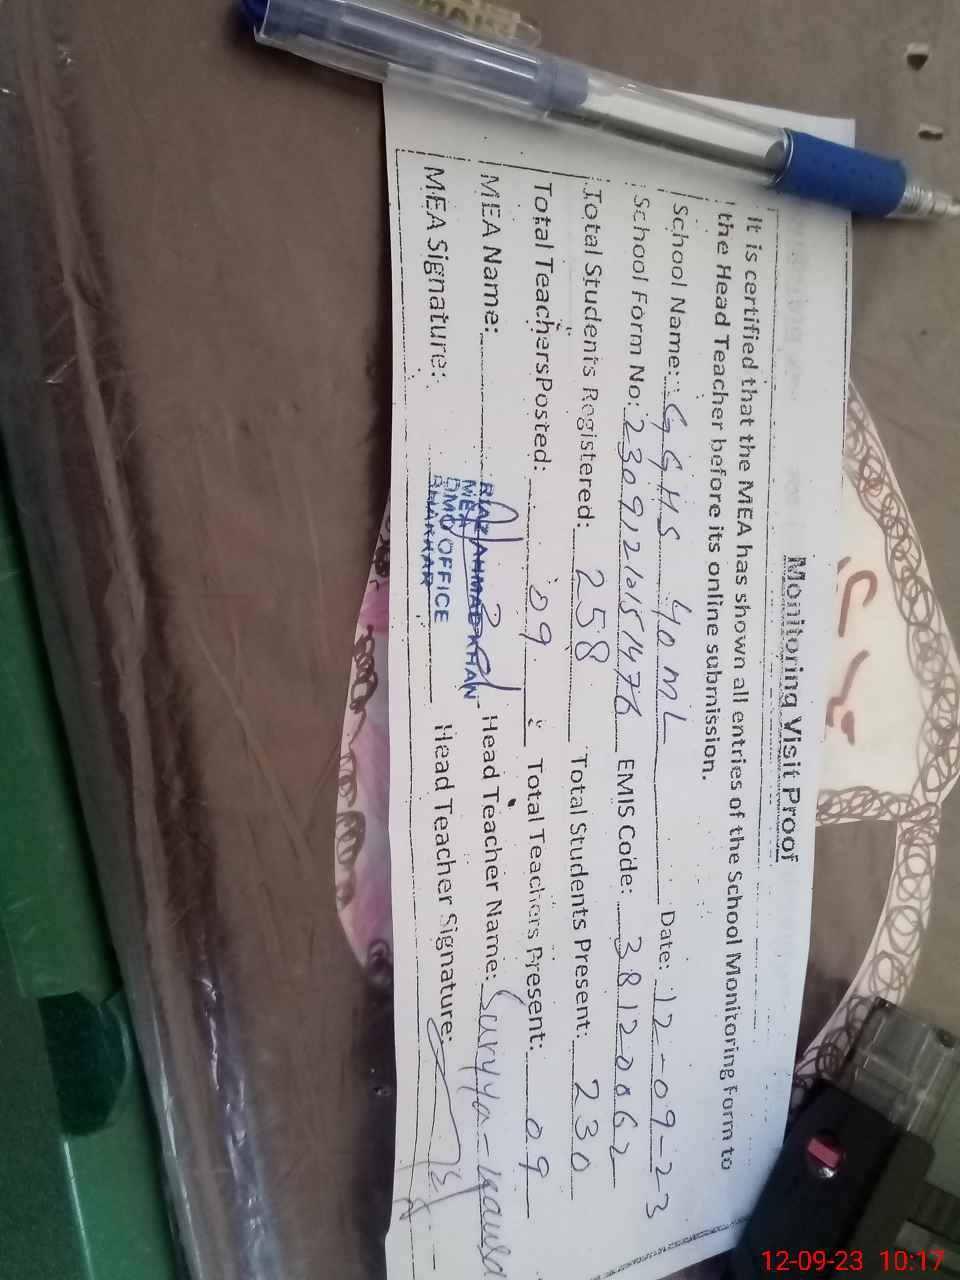 Monitoring Visit Proof
It is certified that the MEA has shown all entries of the School Monitoring Form to
the Head Teacher before its online submission.
School Name: GGHS 40 ML Date: 12-09-23
School Form No: EMIS Code: 38120062
Total Students Registered: 258 Total Students Present: 230
Total Teachers Posted: 09 Total Teachers Present: 09
MEA Name: RIAZ AHMAD KHAN Head Teacher Name:
MEA
MEA Signature: DMO OFFICE Head Teacher Signature:
BHAKKAR
12-09-23 10:17